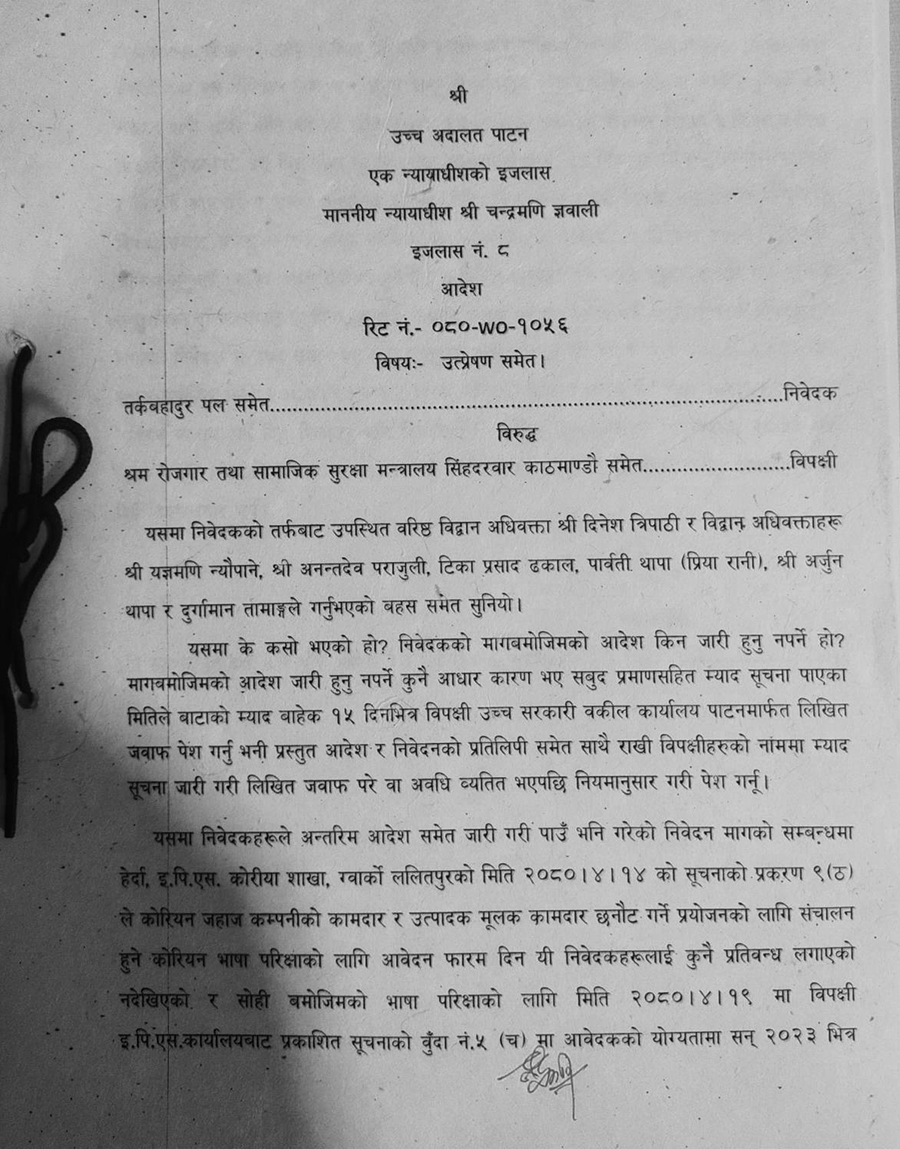 श्री
उच्च अदालत पाटन
एक न्यायाधीशको इजलास
माननीय न्यायाधीश श्री चन्द्रमणि ज्ञवाली
इजलास नं. ८
आदेश
रिट नं.- ०८०-WO-१०५६
विषयः- उत्प्रेषण समेत।
तर्कबहादुर पल समेत..........................................................................................निवेदक
विरुद्ध
श्रम रोजगार तथा सामाजिक सुरक्षा मन्त्रालय सिंहदरवार काठमाण्डौ समेत..........................विपक्षी
यसमा निवेदकको तर्फबाट उपस्थित वरिष्ठ विद्वान अधिवक्ता श्री दिनेश त्रिपाठी र विद्वान अधिवक्ताहरू
श्री यज्ञमणि न्यौपाने, श्री अनन्तदेव पराजुली, टिका प्रसाद ढकाल, पार्वती थापा (प्रिया रानी), श्री अर्जुन
थापा र दुर्गामान तामाङ्गले गर्नुभएको बहस समेत सुनियो।
यसमा के कसो भएको हो? निवेदकको मागबमोजिमको आदेश किन जारी हुनु नपर्ने हो?
मागबमोजिमको आदेश जारी हुनु नपर्ने कुनै आधार कारण भए सबुद प्रमाणसहित म्याद सूचना पाएका
मितिले बाटाको म्याद बाहेक १५ दिनभित्र विपक्षी उच्च सरकारी वकील कार्यालय पाटनमार्फत लिखित
जवाफ पेश गर्नु भनी प्रस्तुत आदेश र निवेदनको प्रतिलिपी समेत साथै राखी विपक्षीहरुको नाममा म्याद
सूचना जारी गरी लिखित जवाफ परे वा अवधि व्यतित भएपछि नियमानुसार गरी पेश गर्नू।
यसमा निवेदकहरूले अन्तरिम आदेश समेत जारी गरी पाउँ भनि गरेको निवेदन मागको सम्बन्धमा
हेर्दा, इ.पि.एस. कोरीया शाखा, ग्वार्को ललितपुरको मिति २०८०।४।१४ को सूचनाको प्रकरण ९(ठ)
ले कोरियन जहाज कम्पनीको कामदार र उत्पादक मूलक कामदार छनौट गर्ने प्रयोजनको लागि संचालन
हुने कोरियन भाषा परिक्षाको लागि आवेदन फारम दिन यी निवेदकहरूलाई कुनै प्रतिवन्ध लगाएको
नदेखिएको र सोही बमोजिमको भाषा परिक्षाको लागि मिति २०८०।४।१९ मा विपक्षी
इ.पि.एस.कार्यालयबाट प्रकाशित सूचनाको बुँदा नं.५ (च) मा आवेदकको योग्यतामा सन् २०२३ भित्र